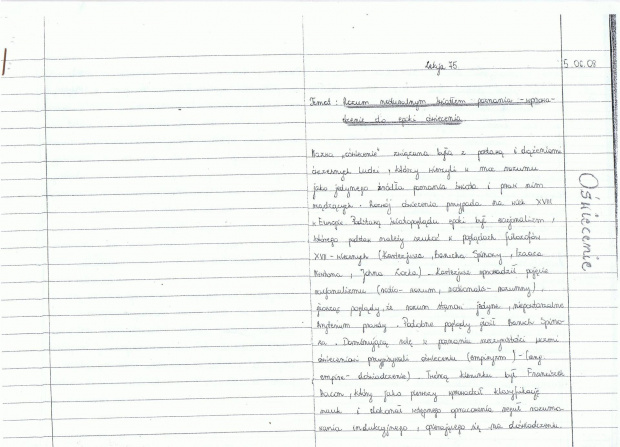 Lekcja 75
5.06.08
Temat : Rozum naturalnym światłem poznania – wprowa-
dzenie do epoki oświecenia
Oświecenie
Nazwa „oświecenie" związana była z postawą i dążeniami
ówczesnych ludzi, którzy wierzyli w moc rozumu
jako jedynego źródła poznania świata i praw nim
rządzących. Rozwój oświecenia przypada na wiek XVIII
w Europie. Podstawą światopoglądu epoki był racjonalizm,
którego podstaw należy szukać w poglądach filozofów
XVII-wiecznych (Kartezjusza, Barucha Spinozy, Izaaca
Newtona, Johna Locka). Kartezjusz wprowadził pojęcie
racjonalizmu (ratio - rozum, rationalis - rozumny),
głosząc poglądy, że rozum stanowi jedyne, niepodważalne
kryterium prawdy. Podobne poglądy głosił Baruch Spino-
za. Dominującą rolę w poznaniu rzeczywistości
oświeceniowi przypisywali (empiryzm) - (ang.
empire - doświadczenie). Twórcą kierunku był Franciszek
Bacon, który jako pierwszy wprowadził klasyfikację
nauk i dokonał wstępnego opracowania reguł rozumo-
wania indukcyjnego, opierającego się na doświadczeniu.